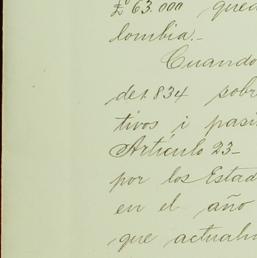 £ 63.000 que
lombia.-
Cuando
de 1834 sobr
tivos i pasi
Artículo 23-
por los Estad
en el año
que actualm